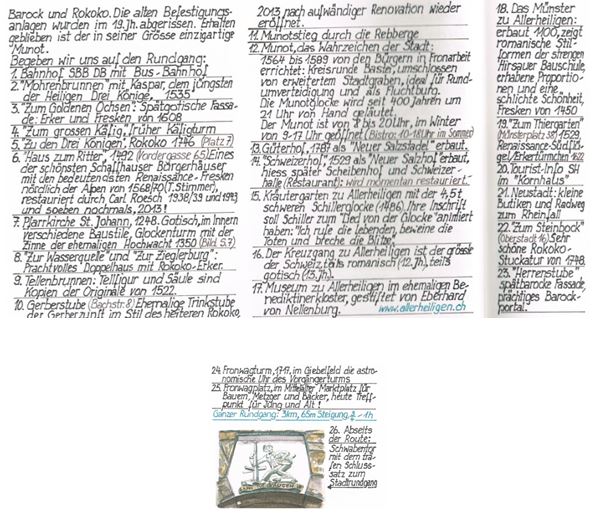 Barock und Rokoko. Die alten Befestigungs-
anlagen wurden im 19. Jh. abgerissen. Erhalten
geblieben ist der in seiner Grösse einzigartige
Munot.
Begeben wir uns auf den Rundgang:
1. Bahnhof SBB DB mit Bus-Bahnhof
2. "Mohrenbrunnen" mit Kaspar, dem jüngsten
der Heiligen Drei Könige, 1535
3. Zum Goldenen Ochsen: Spätgotische Fassa-
de; Erker und Fresken von 1608
4. "Zum grossen Käfig", früher Käfigturm
5. "Zu den Drei Königen", Rokoko 1746 (Platz 7)
6. "Haus zum Ritter", 1492 (Vordergasse 65) Eines
der schönsten Schaffhauser Bürgerhäuser
mit den bedeutendsten Renaissance-Fresken
nördlich der Alpen von 1568/70 (T. Stimmer),
restauriert durch Carl Roesch 1938/39 und 1943
und soeben nochmals, 2013!
7. Pfarrkirche St. Johann, 1248, Gotisch, im Innern
verschiedene Baustile, Glockenturm mit der
Zinne der ehemaligen Hochwacht 1350 (Bild S.7)
8. "Zur Wasserquelle" und "Zur Zieglerburg":
Prachtvolles Doppelhaus mit Rokoko-Erker.
9. Tellenbrunnen: Tellfigur und Säule sind
Kopien der Originale von 1522
10. Gerberstube (Bachstr. 8) Ehemalige Trinkstube
der Gerberzunft im Stil des heiteren Rokoko,
2013 nach aufwändiger Renovation wieder
eröffnet.
11. Munotstieg durch die Rebberge
12. Munot, das Wahrzeichen der Stadt:
1564 bis 1589 von den Bürgern in Fronarbeit
errichtet: Kreisrunde Bastei, umschlossen
von erweitertem Stadtgraben, ideal für Rund-
umverteidigung und als Fluchtburg.
Die Munotglocke wird seit 400 Jahren um
21 Uhr von Hand geläutet.
Der Munot ist von 8 bis 20 Uhr, im Winter
von 9-17 Uhr geöffnet (Bistro: 10-18 Uhr im Sommer)
13. Güterhof, 1787 als "Neuer Salzstadel" erbaut
14. "Schweizerhof", 1529 als "Neuer Salzhof" erbaut,
hiess später Scheibenhof und Schweizer-
halle (Restaurant); wird momentan restauriert.
15. Kräutergarten zu Allerheiligen mit der 4,5 t
schweren Schillerglocke (1486). Ihre Inschrift
soll Schiller zum "Lied von der Glocke" animiert
haben: "Ich rufe die lebenden, beweine die
Toten und breche die Blitze."
16. Der Kreuzgang zu Allerheiligen ist der grösste
der Schweiz, teils romanisch (12. Jh), teils
gotisch (13. Jh).
17. Museum zu Allerheiligen im ehemaligen Be-
nediktinerkloster, gestiftet von Eberhard
von Nellenburg. www.allerheiligen.ch
18. Das Münster
zu Allerheiligen:
erbaut 1100, zeigt
romanische Stil-
formen der strengen
Hirsauer Bauschule,
erhabene Proportio-
nen und eine
schlichte Schönheit,
Fresken von 1450
19. "Zum Thiergarten"
(Münsterplatz 38) 1529
Renaissance-Südflü-
gel/Erkertürmchen 1622
20. Tourist-Info SH
im "Kornhaus"
21. Neustadt: kleine
Butiken und Radweg
zum Rheinfall
22. "Zum Steinbock"
(Oberstadt 16) Sehr
schöne Rokoko-
Stuckatur von 1748
23. "Herrenstube"
spätbarocke Fassade,
prächtiges Barock-
portal.
24. Fronwagturm, 1747, im Giebelfeld die astro-
nomische Uhr des Vorgängerturms
25. Fronwagplatz, im Mittelalter Marktplatz für
Bauern, Metzger und Bäcker, heute Treff-
punkt für Jung und Alt!
Ganzer Rundgang: 3km, 65m Steigung, ¾ - 1h
26. Abseits
der Route:
Schwabentor
mit dem träf-
fen Schluss-
satz zum
Stadtrundgang